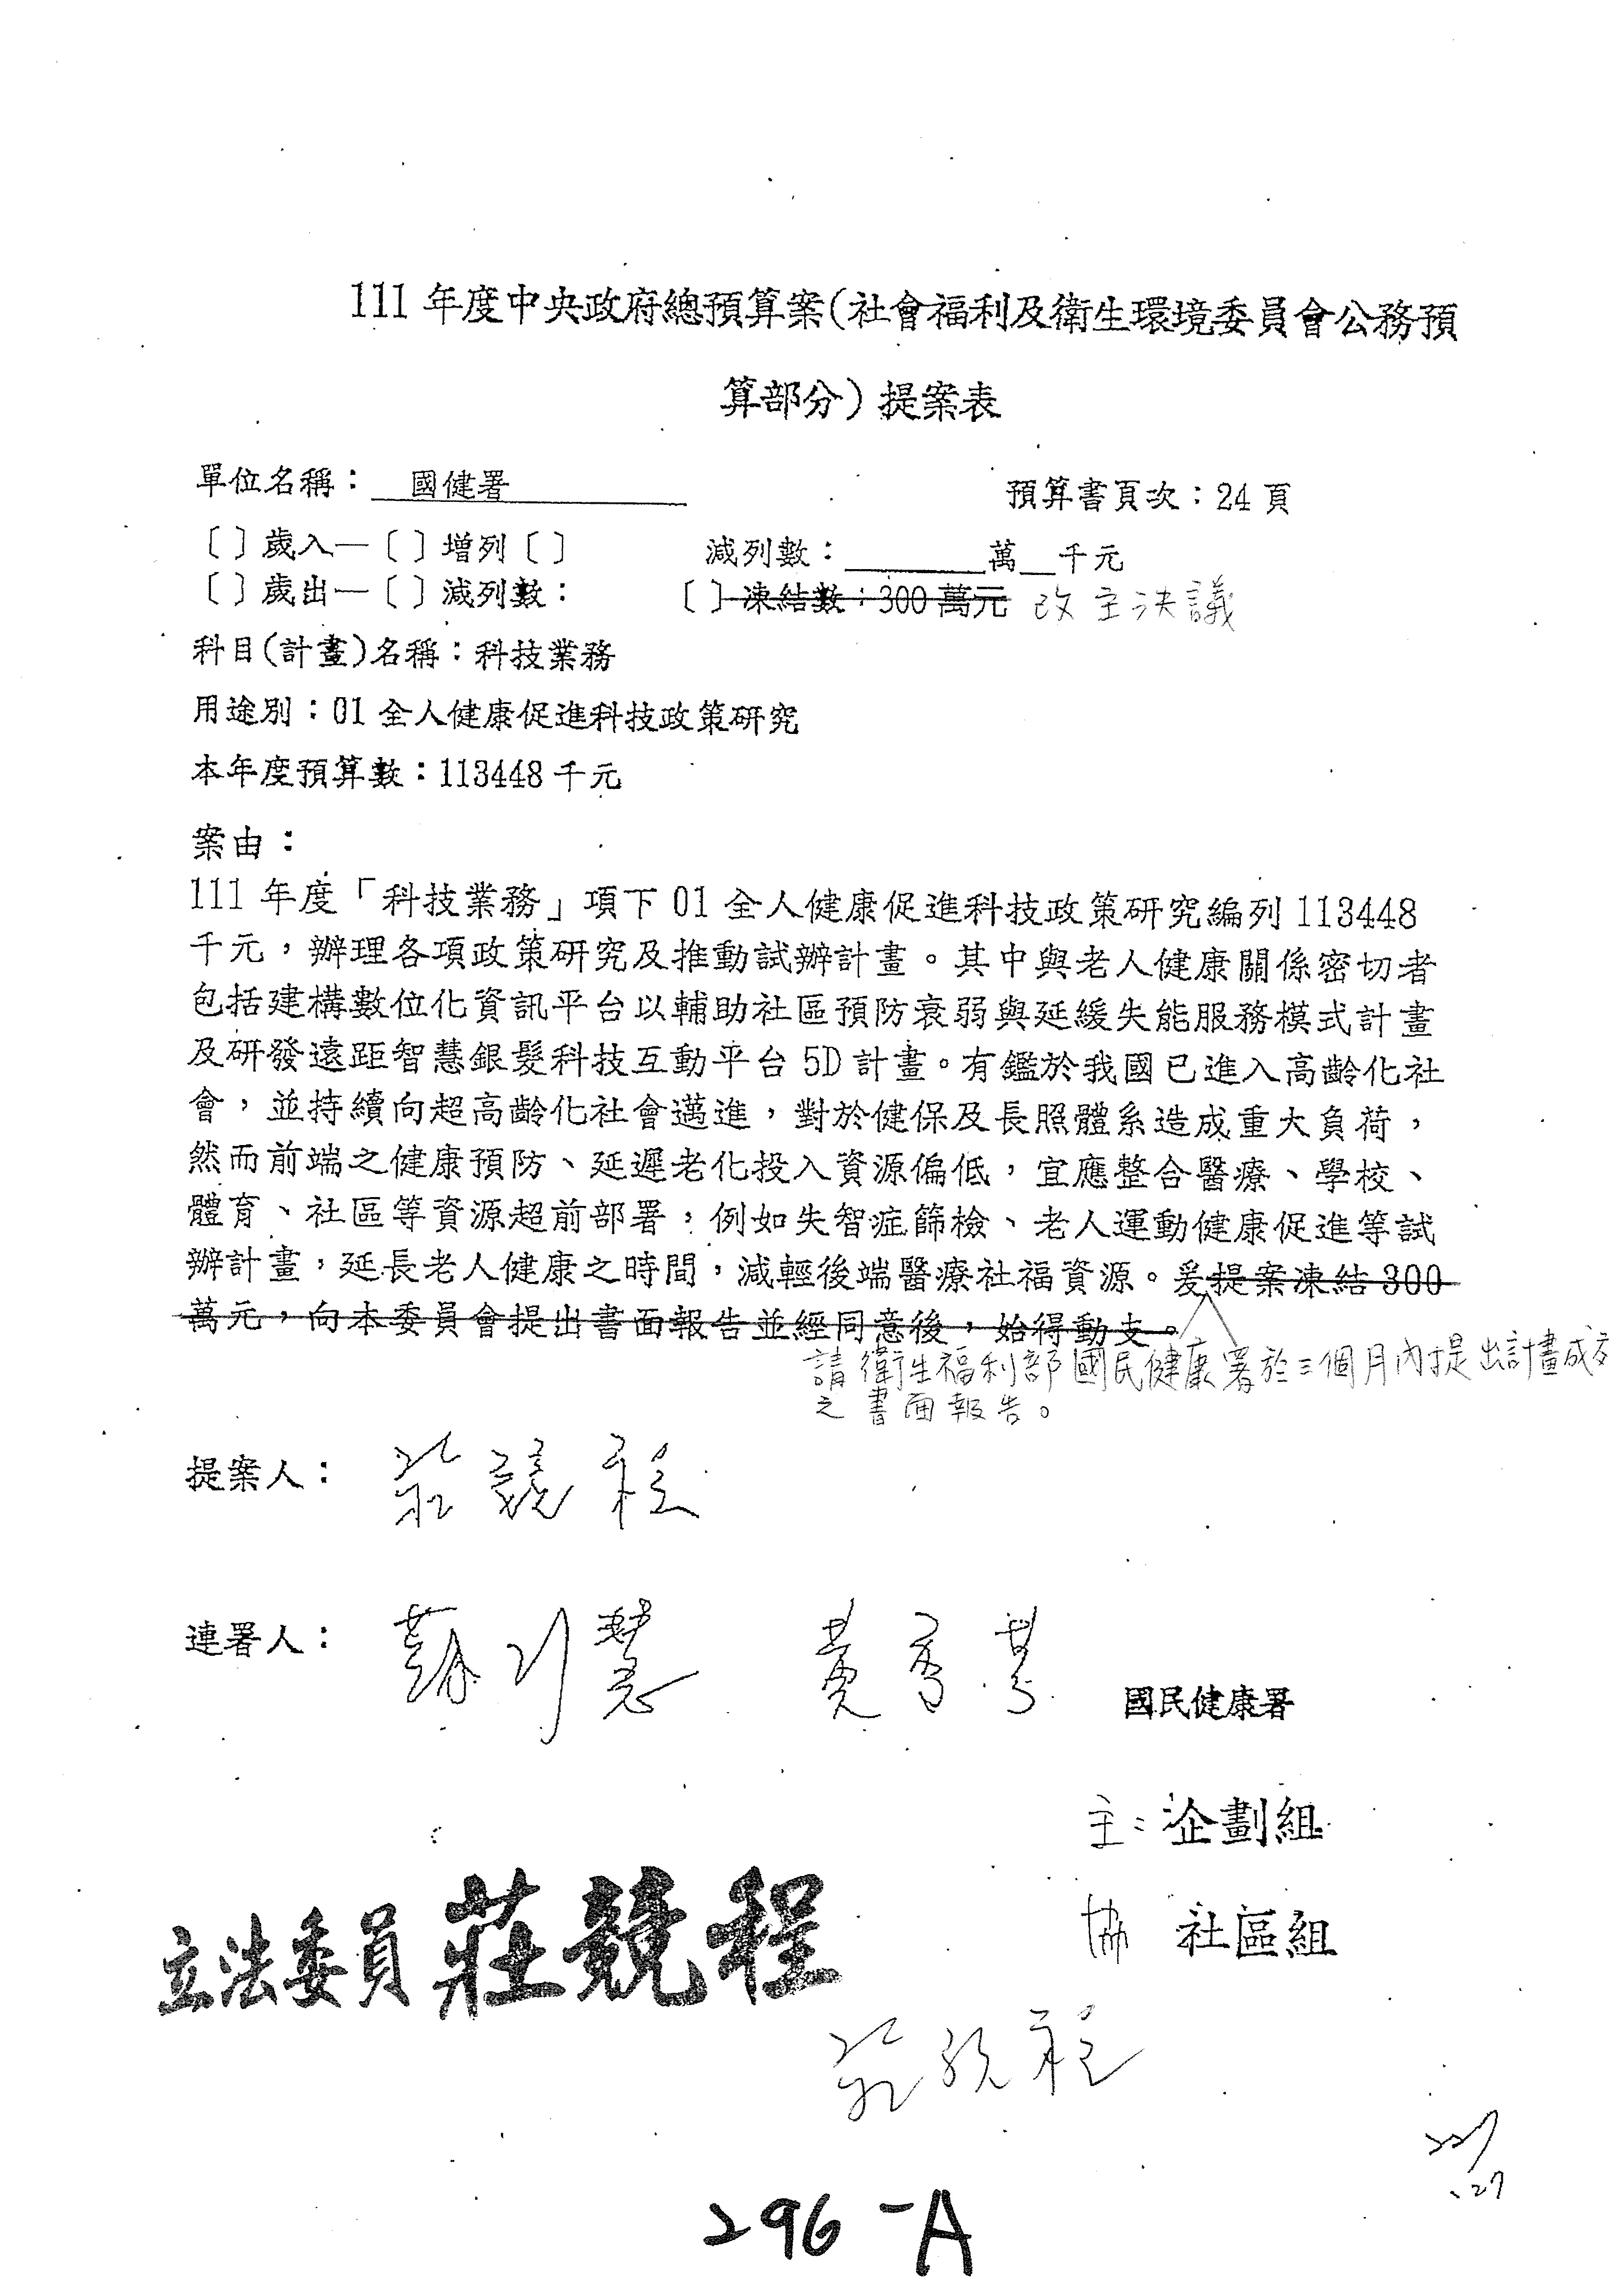 111 年度中央政府總預算案(社會福利及衛生環境委員會公務預
算部分)提案表
單位名稱： 國健署
預算書頁次：24 頁
〔 〕歲入—〔 〕增列〔 〕 減列數：______萬__千元
〔 〕歲出—〔 〕減列數： 〔 〕凍結數：300 萬元 改主決議
科目(計畫)名稱：科技業務
用途別：01 全人健康促進科技政策研究
本年度預算數：113448 千元
案由：
111 年度「科技業務」項下 01 全人健康促進科技政策研究編列 113448
千元，辦理各項政策研究及推動試辦計畫。其中與老人健康關係密切者
包括建構數位化資訊平台以輔助社區預防衰弱與延緩失能服務模式計畫
及研發遠距智慧銀髮科技互動平台 5D 計畫。有鑑於我國已進入高齡化社
會，並持續向超高齡化社會邁進，對於健保及長照體系造成重大負荷，
然而前端之健康預防、延遲老化投入資源偏低，宜應整合醫療、學校、
體育、社區等資源超前部署，例如失智症篩檢、老人運動健康促進等試
辦計畫，延長老人健康之時間，減輕後端醫療社福資源。爰提案凍結 300
萬元，向本委員會提出書面報告並經同意後，始得動支。
請衛生福利部國民健康署於三個月內提出計畫成
之書面報告。
提案人： 莊競程
連署人： 蘇巧慧 黃秀芳
國民健康署
主：企劃組
協 社區組
立法委員 莊競程
莊競程
296-A